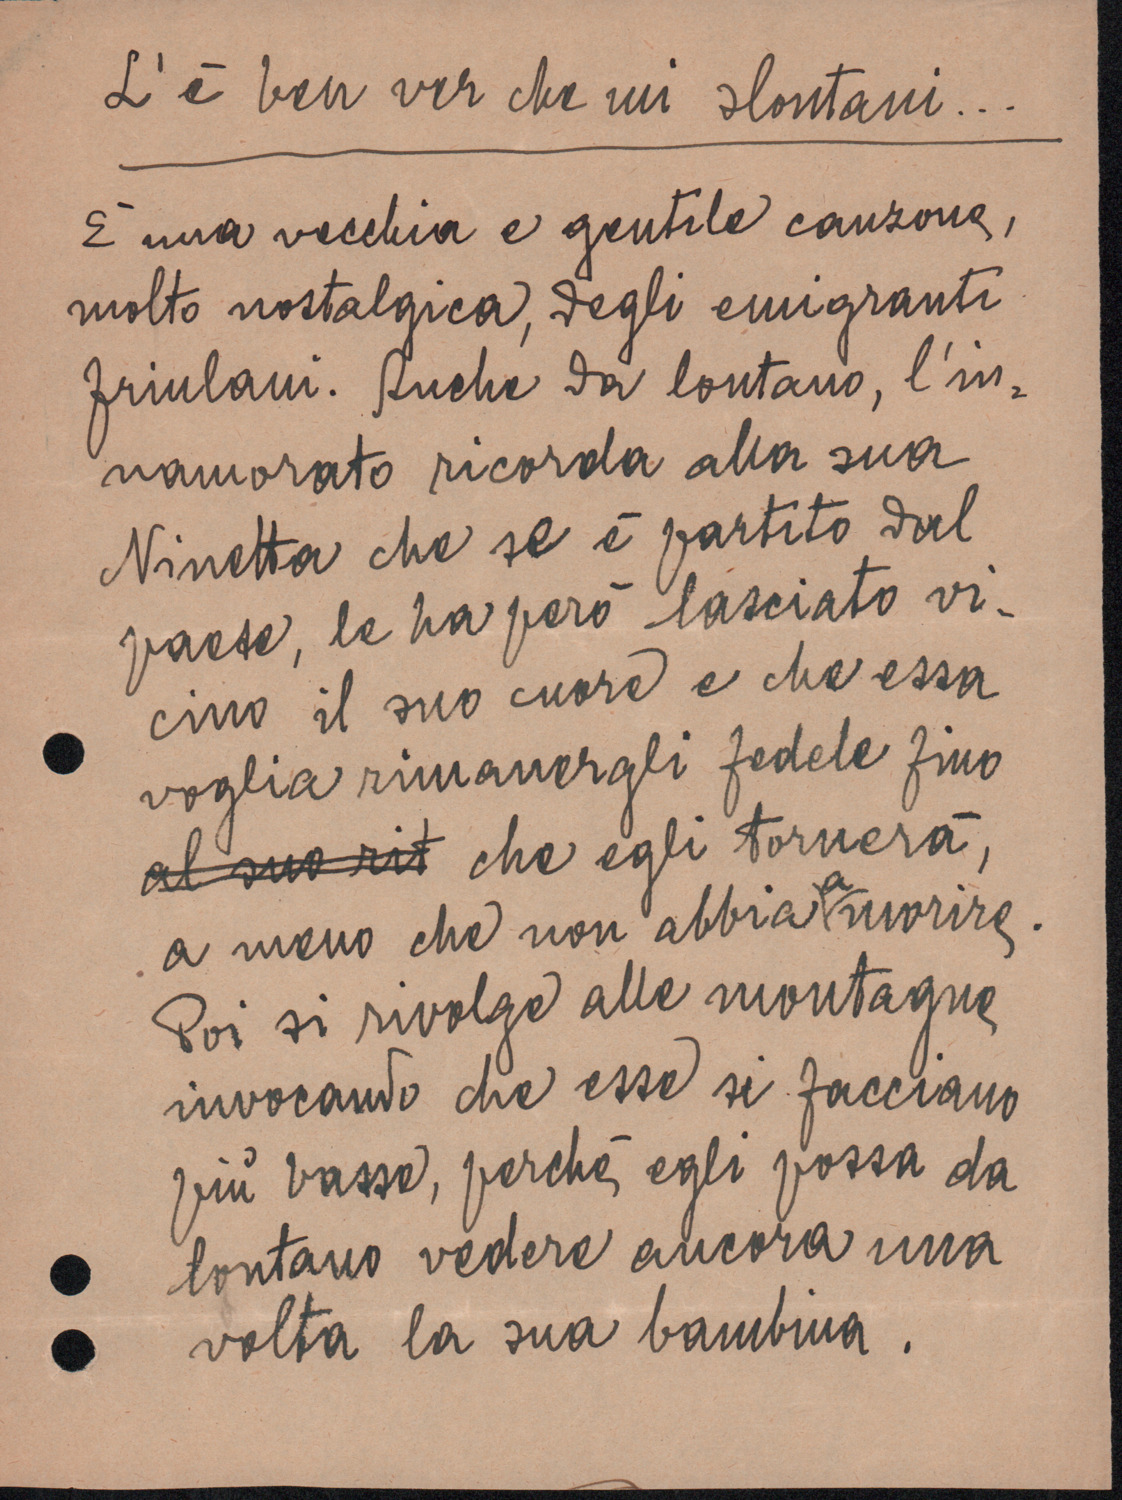 L'è ben ver che mi slontani...
È una vecchia e gentile canzone,
molto nostalgica, degli emigranti
friulani. Anche da lontano, l'in-
namorato ricorda alla sua
Ninetta che se è partito dal
paese, le ha però lasciato vi-
cino il suo cuore e che essa
voglia rimanergli fedele fino
al suo rit che egli tornerà,
a meno che non abbia a morire.
Poi si rivolge alle montagne
invocando che esse si facciano
più basse, perché egli possa da
lontano vedere ancora una
volta la sua bambina.